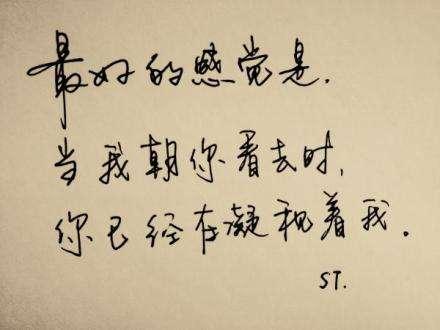 最好的感觉是，
当我朝你看去时，
你已经在凝视着我。
ST.